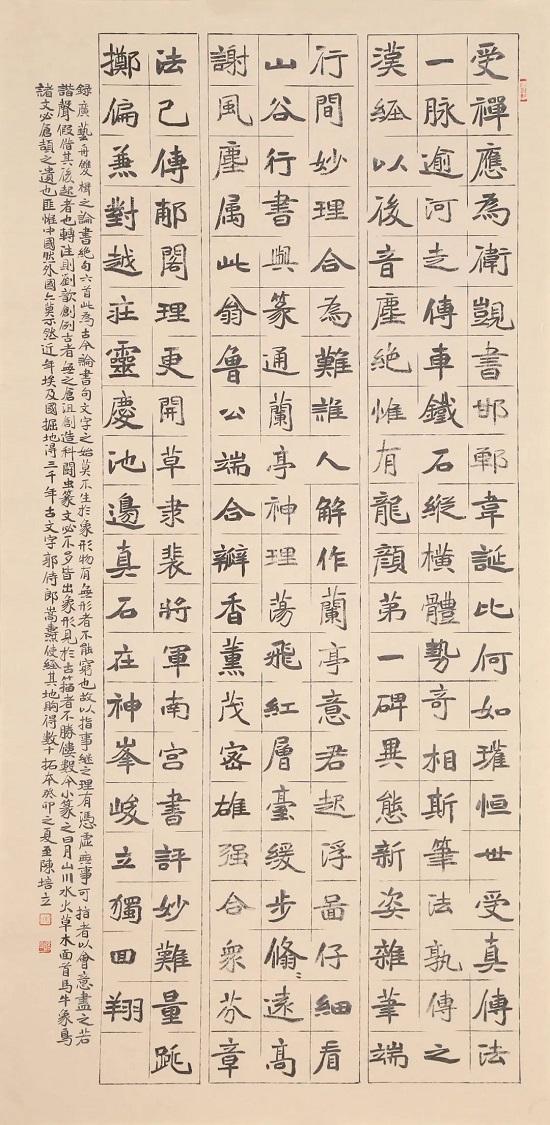 受禪應為衛覬書邯鄲韋誕比何如璀恒世受真傳法
一脉逾河走傳車鐵石縱橫體勢奇相斯筆法孰傳之
漢經以後音塵絕惟有龍顏第一碑異態新姿雜筆端
行間妙理合為難誰人解作蘭亭意君起浮啚仔細看
山谷行書與篆通蘭亭神理蕩飛紅層臺緩步翛〻遠高
謝風塵属此翁魯公端合瓣香薰茂密雄强合眾芬章
法已傳郙閣理更開草隶裴將軍南宮書評妙難量跎
擲偏兼對越莊靈慶池邊真石在神峯峻立獨回翔
錄廣藝舟雙楫之論書絕句六首此為古今論書句文字之始莫不生於象形物有無形者不能窮也故以指事繼之理有憑虛無事可指者以會意盡之若
諧聲假借其後起者也轉注則劉歆創例古者無之倉沮創造科鬪虫篆文必不多皆出象形見於古籀者不勝僂數今小篆之日月山川水火草木面首馬牛象鳥
諸文必倉頡之遺也匪惟中國然外國亦莫不然近年埃及國掘地得三千年古文字郭侍郎嵩燾使經其地購得數十拓本癸卯之夏至陳培立